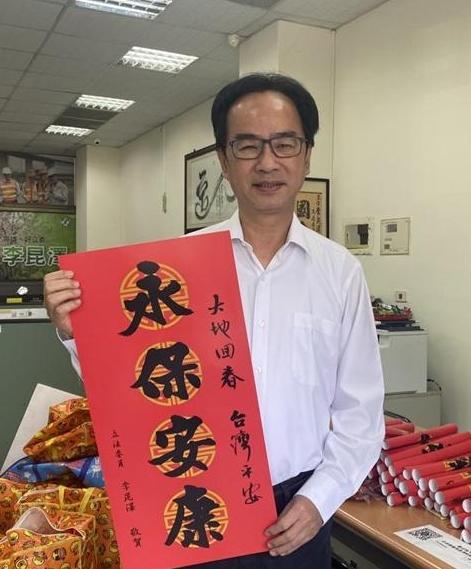 永保安康
大地回春 台灣平安
立法委員 李昆澤 敬賀
李昆澤
國